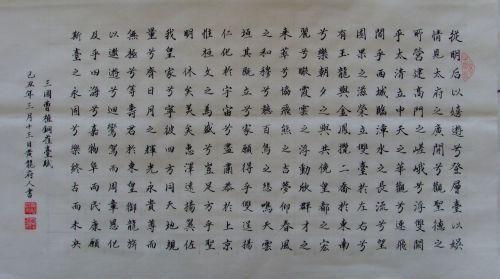 從明后以嬉遊兮登層臺以娛
情見太府之廣開兮觀聖德之
所營建高門之嵯峨兮浮雙闕
乎太清立中天之華觀兮連飛
閣乎西城臨漳水之長流兮望
園果之滋榮立雙臺於左右兮
有玉龍與金鳳攬二喬於東南
兮樂朝夕之與共俯皇都之宏
麗兮瞰雲霞之浮動欣群才之
來萃兮協飛熊之吉夢仰春風
之和穆兮聽百鳥之悲鳴天雲
垣其既立兮家願得乎雙逞揚
仁化於宇宙兮盡肅恭於上京
惟桓文之為盛兮豈足方乎聖
明 休矣美矣惠澤遠揚翼佐
我皇家兮寧彼四方同天地規
量兮齊日月之輝光永貴尊而
無極兮等年壽於東皇御龍旂
以遨遊兮迴鸞駕而周章恩化
及乎四海兮嘉物阜而民康願
斯臺之永固兮樂終古而未央
三國曹植銅雀臺賦
己丑年三月十三日黃龍府人書